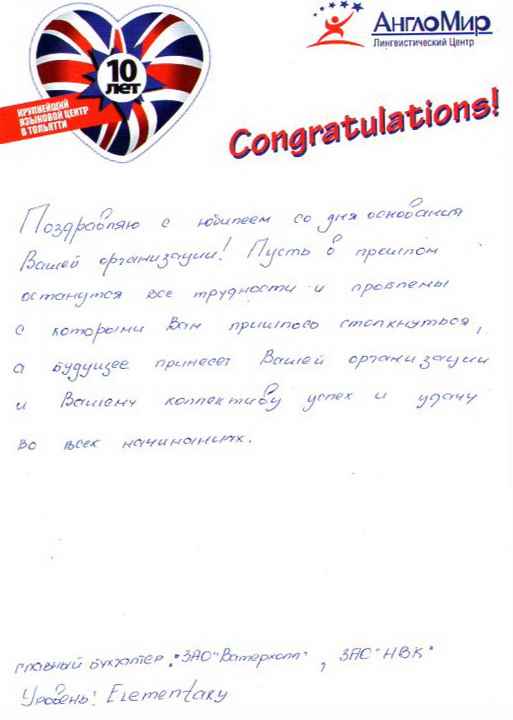 10
лет
КРУПНЕЙШИЙ
ЯЗЫКОВОЙ ЦЕНТР
В ТОЛЬЯТТИ
АнглоМир
Лингвистический Центр
Congratulations!
Поздравляю с юбилеем со дня основания
Вашей организации! Пусть в прошлом
останутся все трудности и проблемы
с которыми Вам пришлось столкнуться,
а будущее принесет Вашей организации
и Вашему коллективу успех и удачу
во всех начинаниях.
главный бухгалтер ЗАО "Ватерхолл", ЗАО "НВК"
Уровень: Elementary